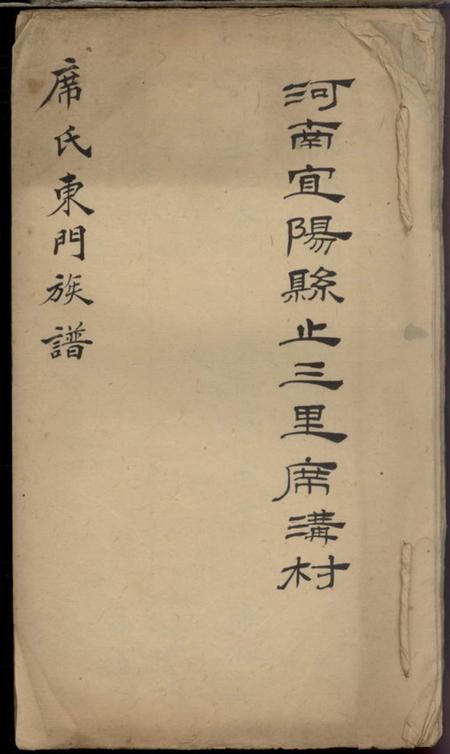 河南宜陽縣止三里席溝村
席氏東門族譜